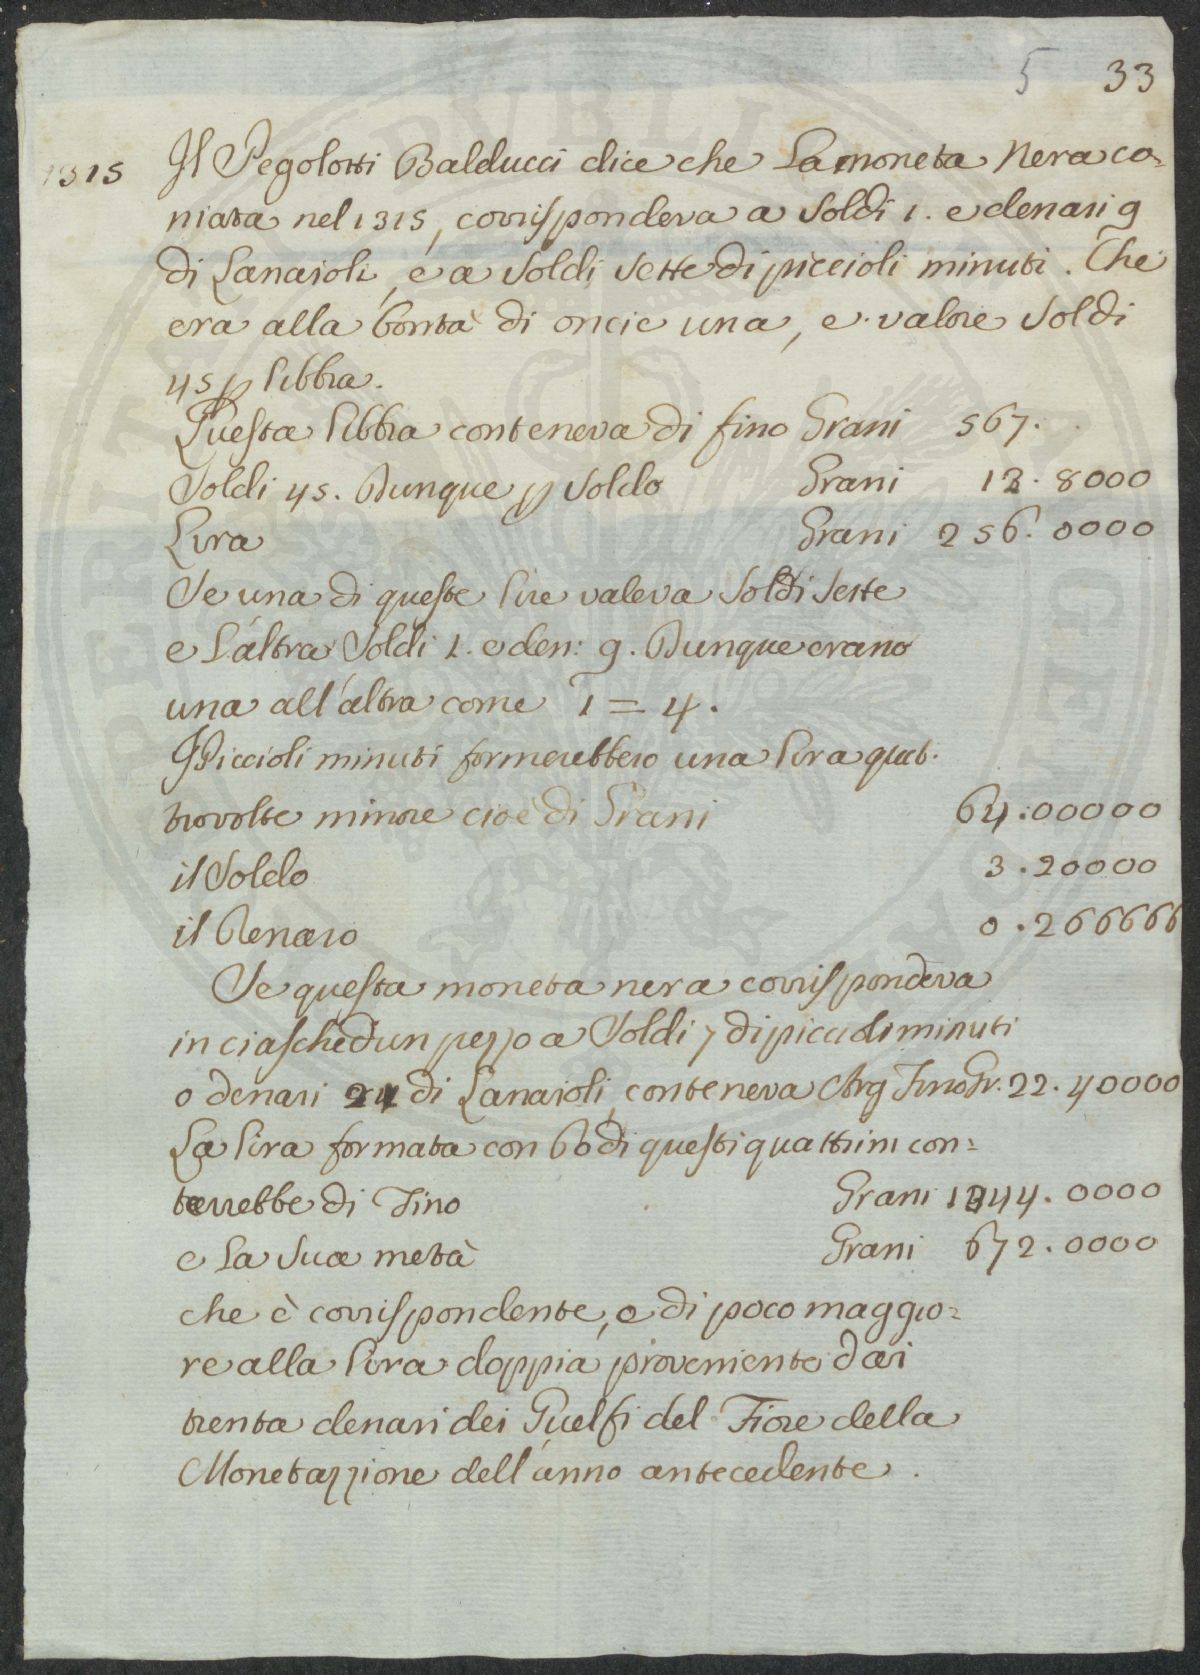 5 33
1315 Il Pegolotti Balducci dice che La moneta Nera co=
niata nel 1315, corrispondeva a Soldi 1. e denari 9
di Lanaioli, e a Soldi Sette di piccioli minuti. Che
era alla bontà di oncie una, e valore Soldi
45 p libbra.
Questa libbra conteneva di fino Grani 567.
Soldi 45. Dunque p Soldo Grani 12.8000
Lira Grani 256.0000
Se una di queste lire valeva Soldi Sette
e L'altra Soldi 1. e den: 9. Dunque erano
una all'altra come 1 = 4.
I Piccioli minuti formerebbero una lira quat.
trovolte minore cioè di Grani 64.00000
il Soldo 3.20000
il Denaro 0.266666
Se questa moneta nera corrispondeva
in ciaschedun pezzo a Soldi 7 di piccioli minuti
o denari 21 di Lanaioli, conteneva Arg Fino Gr. 22.40000
La lira formata con 60 di questi quattrini con=
terrebbe di Fino Grani 1344.0000
e La Sua metà Grani 672.0000
che è corrispondente, o di poco maggio=
re alla lira doppia proveniente dai
trenta denari dei Guelfi del Fiore della
Monetazzione dell'anno antecedente.